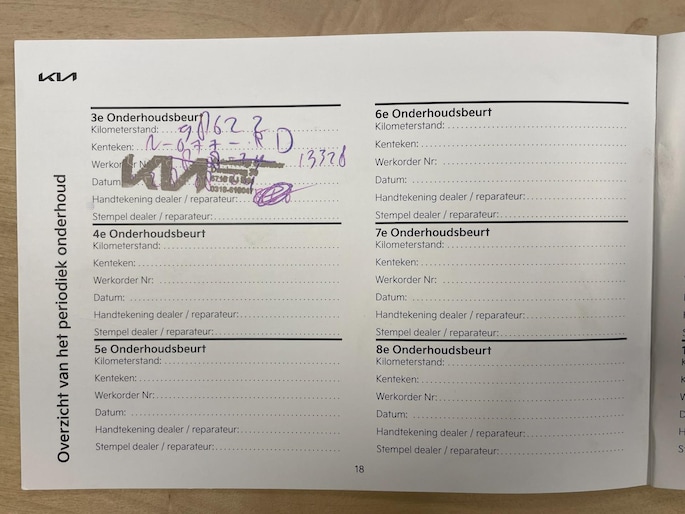 KIA
Overzicht van het periodiek onderhoud
3e Onderhoudsbeurt
Kilometerstand:
Kenteken: N-977-RD
Werkorder Nr: 13328
Datum:
KIA
Handtekening dealer / reparateur:
Stempel dealer / reparateur:
4e Onderhoudsbeurt
Kilometerstand:
Kenteken:
Werkorder Nr:
Datum:
Handtekening dealer / reparateur:
Stempel dealer / reparateur:
5e Onderhoudsbeurt
Kilometerstand:
Kenteken:
Werkorder Nr:
Datum:
Handtekening dealer / reparateur:
Stempel dealer / reparateur:
6e Onderhoudsbeurt
Kilometerstand:
Kenteken:
Werkorder Nr:
Datum:
Handtekening dealer / reparateur:
Stempel dealer / reparateur:
7e Onderhoudsbeurt
Kilometerstand:
Kenteken:
Werkorder Nr:
Datum:
Handtekening dealer / reparateur:
Stempel dealer / reparateur:
8e Onderhoudsbeurt
Kilometerstand:
Kenteken:
Werkorder Nr:
Datum:
Handtekening dealer / reparateur:
Stempel dealer / reparateur:
18